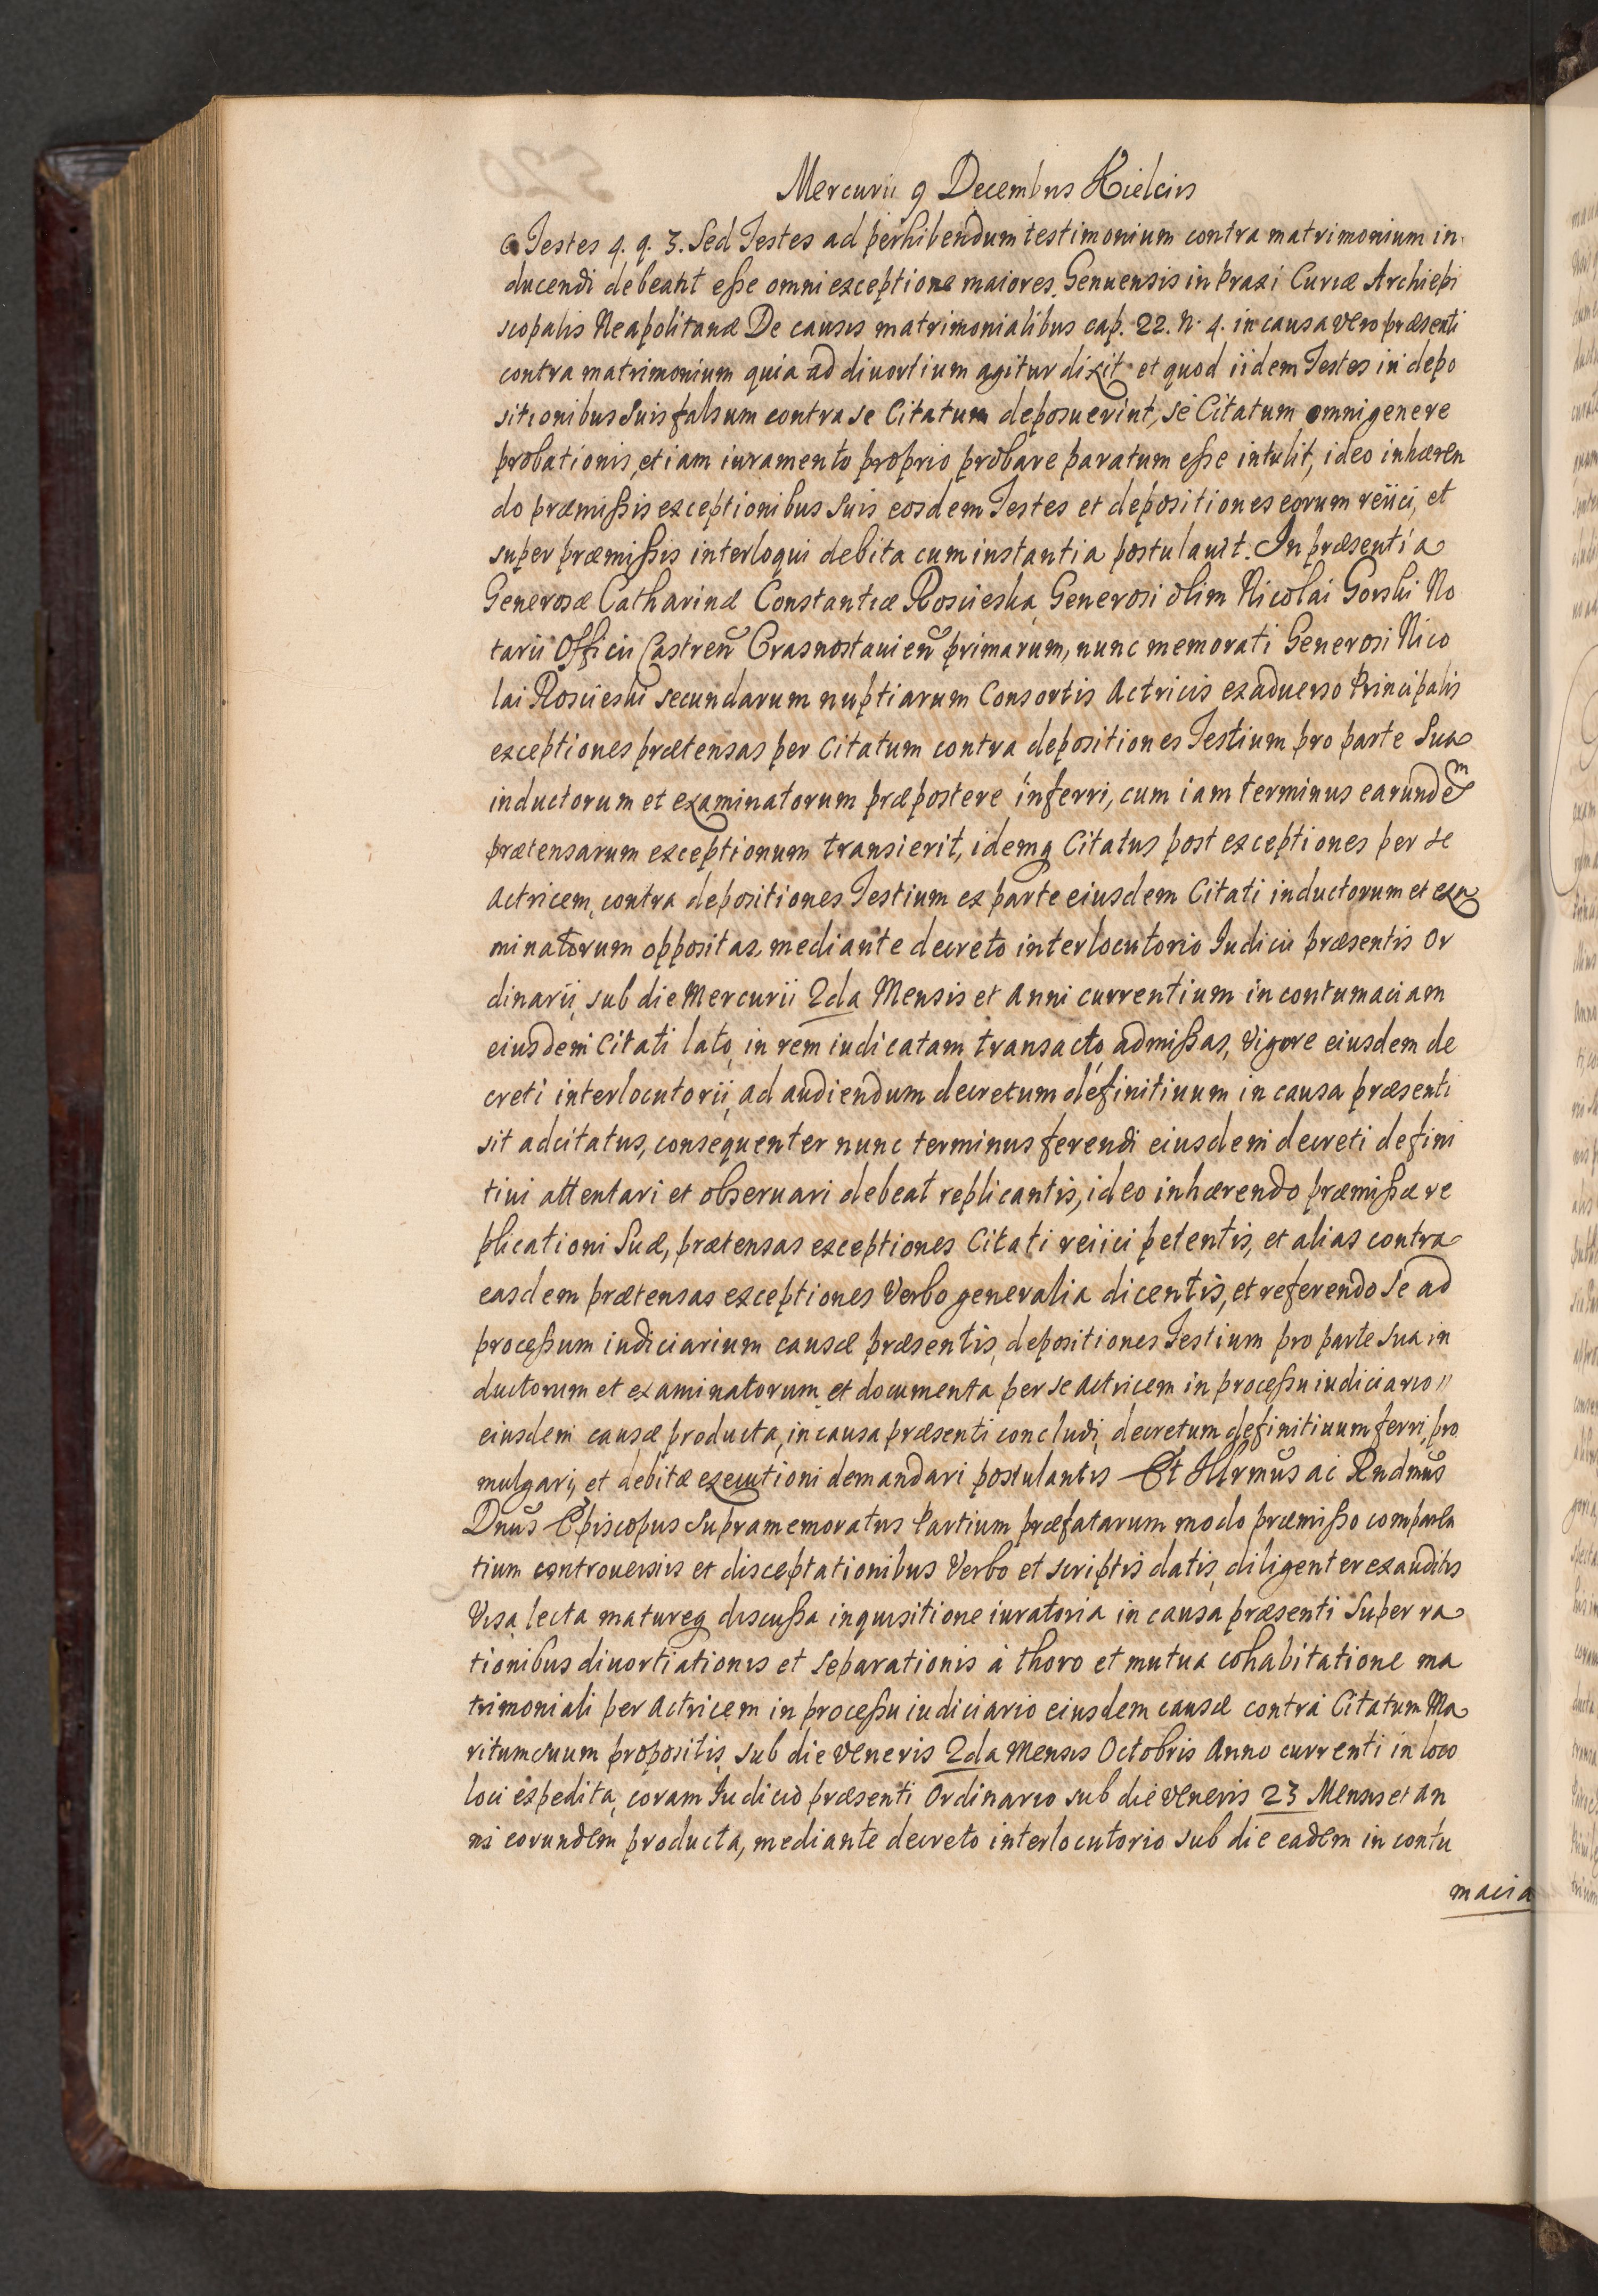 Mercurii 9 Decembris Kielciis
C. Testes 4. q. 3. Sed Testes ad perhibendum testimonium contra matrimonium in
ducendi debeant eße omni exceptione maiores, Genuensis in Praxi Curiæ Archiepi
scopalis Neapolitanæ De causis matrimonialibus cap. 22. N. 4. in causa vero præsenti
contra matrimonium quia ad diuortium agitur dixit et quod iidem Testes in depo
sitionibus suis falsum contra se Citatum deposuerint, se Citatum omni genere
probationis, etiam iuramento proprio probare paratum eße intulit, ideo inhæren
do præmißis exceptionibus suis eosdem Testes et depositiones eorum reiici, et
super præmißis interloqui debita cum instantia postulauit. In præsentia
Generosæ Catharinæ Constantiæ Roscieska, Generosi olim Nicolai Gorski No
tarii Officii Castreñ Crasnostauieñ primarum, nunc memorati Generosi Nico
lai Roscieski secundarum nuptiarum Consortis Actricis ex aduerso Principalis
exceptiones prætensas per Citatum contra depositiones Testium pro parte Sua
inductorum et examinatorum præpostere inferri, cum iam terminus earundem
prætensarum exceptionum transierit, idemq Citatus post exceptiones per se
Actricem, contra depositiones Testium ex parte eiusdem Citati inductorum et exa
minatorum oppositas, mediante decreto interlocutorio Iudicii præsentis Or
dinarii, sub die Mercurii 2da Mensis et Anni currentium in contumaciam
eiusdem Citati lato, in rem iudicatam transacto admißas, vigore eiusdem de
creti interlocutorii, ad audiendum decretum definitiuum in causa præsenti
sit adcitatus, consequenter nunc terminus ferendi eiusdem decreti defini
tiui attentari et obseruari debeat replicantis, ideo inhærendo præmißæ re
plicationi Suæ, prætensas exceptiones Citati reiici petentis, et alias contra
easdem prætensas exceptiones Verbo generalia dicentis, et referendo se ad
proceßum iudiciarium causæ præsentis, depositiones Testium pro parte sua in
ductorum et examinatorum, et documenta per se Actricem in proceßu iudiciario
eiusdem causæ producta, in causa præsenti concludi, decretum definitiuum ferri, pro
mulgari, et debitæ executioni demandari postulantis Et Illrmus ac Rndmus
Dnus Episcopus supramemoratus Partium præfatarum modo præmißo comparen
tium controuersiis et disceptationibus Verbo et scriptis datis, diligenter exauditis
Visa, lecta matureq discußa inquisitione iuratoria in causa præsenti super ra
tionibus diuortiationis et separationis à thoro et mutua cohabitatione ma
trimoniali per Actricem in proceßu iudiciario eiusdem causæ contra Citatum Ma
ritum suum propositis, sub die Veneris 2da Mensis Octobris Anno currenti in loco
loci expedita, coram Iudicio præsenti Ordinario sub die Veneris 23 Mensis et An
ni eorundem producta, mediante decreto interlocutorio sub die eadem in contu
macia